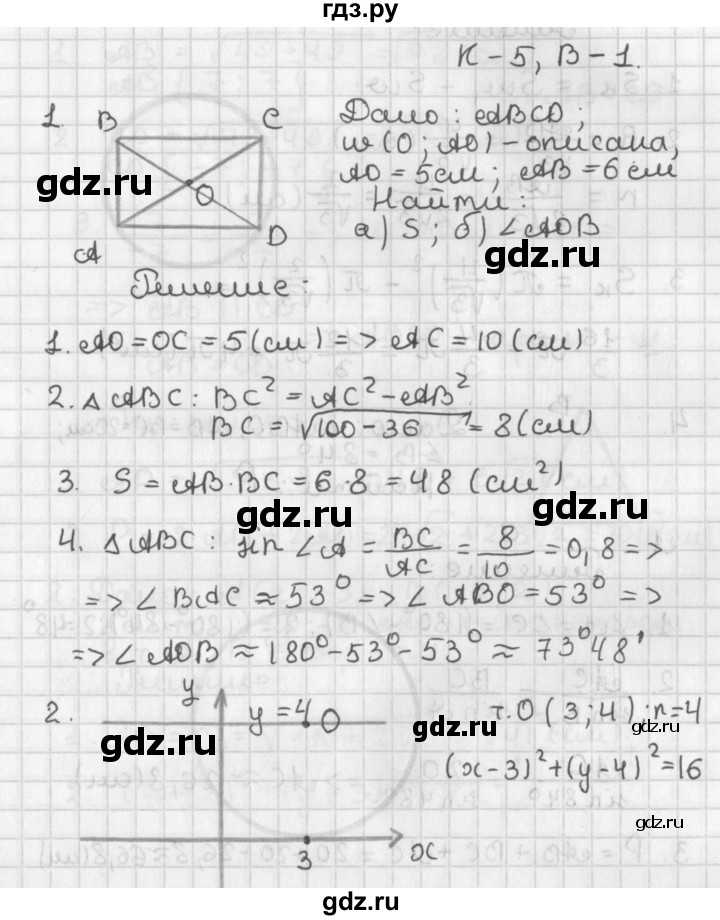 гдз.ру
К – 5, В – 1.
1. B C Дано: ABCD;
w (O; AO) – описана,
AO = 5 см; AB = 6 см
gdz.ru
O
Найти:
A D а) S; б) ∠AOB
gdz.ru
Решение:
1. AO = OC = 5 (см) => AC = 10 (см)
2. △ ABC: BC² = AC² – AB²
BC = √100 – 36 = 8 (см)
3. S = AB · BC = 6 · 8 = 48 (см²)
gdz.ru gdz.ru
4. △ ABC: sin ∠A = BC/AC = 8/10 = 0,8 =>
=> ∠ BAC ≈ 53° => ∠ ABO = 53° =>
=> ∠ AOB ≈ 180° – 53° – 53° ≈ 73°48'
2. y y = 4 O т. O (3; 4); r = 4
gdz.ru gdz.ru gdz.ru
(x – 3)² + (y – 4)² = 16
gdz.ru
3 x
gdz.ru